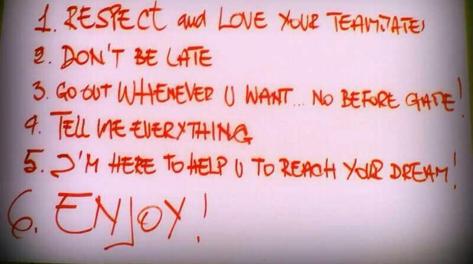 1. RESPECT and LOVE YOUR TEAMMATES
2. DON'T BE LATE
3. GO OUT WHENEVER U WANT... NO BEFORE GAME!
4. TELL ME EVERYTHING
5. I'M HERE TO HELP U TO REACH YOUR DREAM!
6. ENJOY!